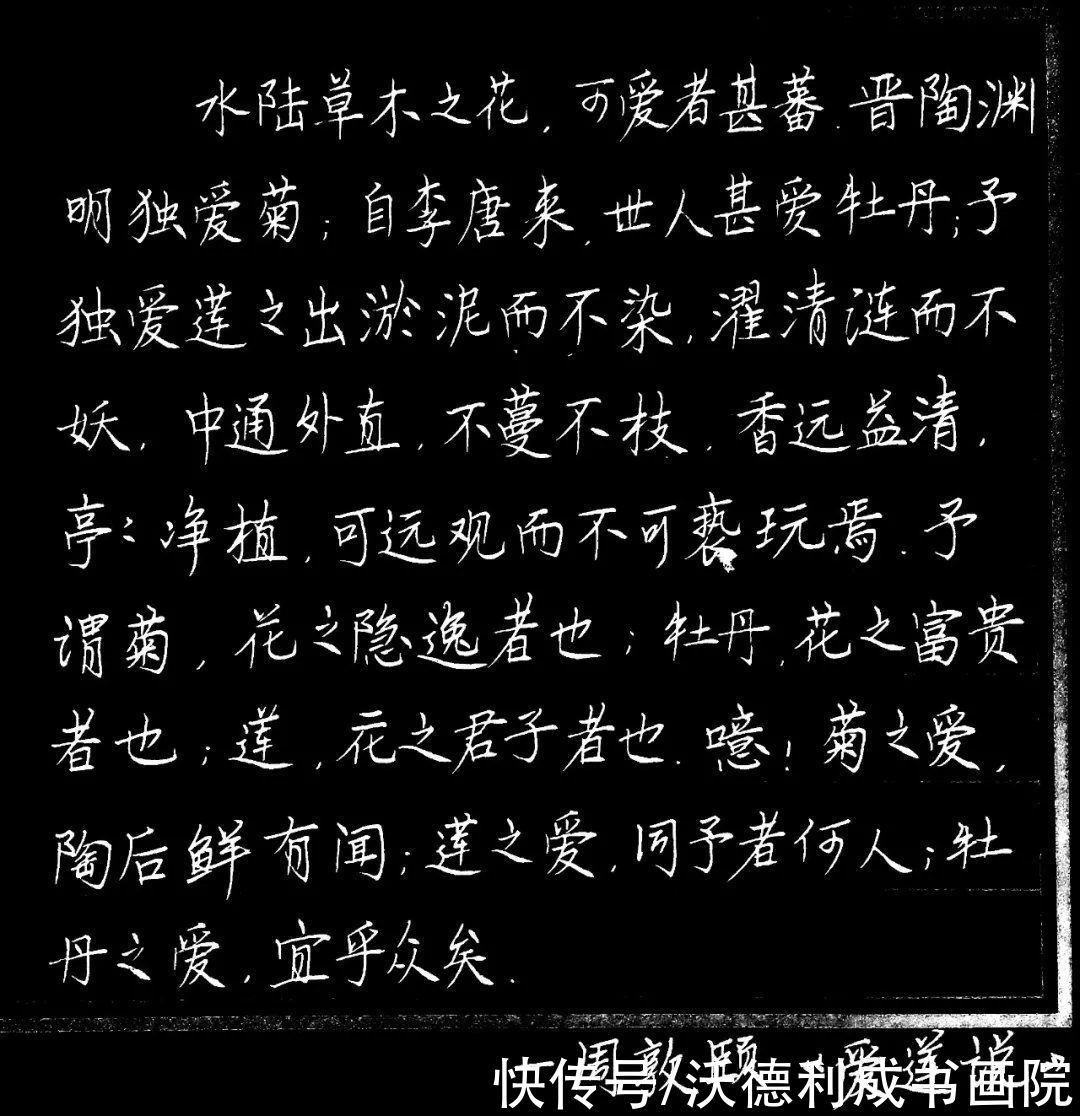 水陆草木之花，可爱者甚蕃．晋陶渊
明独爱菊；自李唐来，世人甚爱牡丹；予
独爱莲之出淤泥而不染，濯清涟而不
妖，中通外直，不蔓不枝，香远益清，
亭亭净植，可远观而不可亵玩焉．予
谓菊，花之隐逸者也；牡丹，花之富贵
者也；莲，花之君子者也．噫！菊之爱，
陶后鲜有闻；莲之爱，同予者何人；牡
丹之爱，宜乎众矣．
周敦颐 爱莲说
快传号/沃德利成书画院